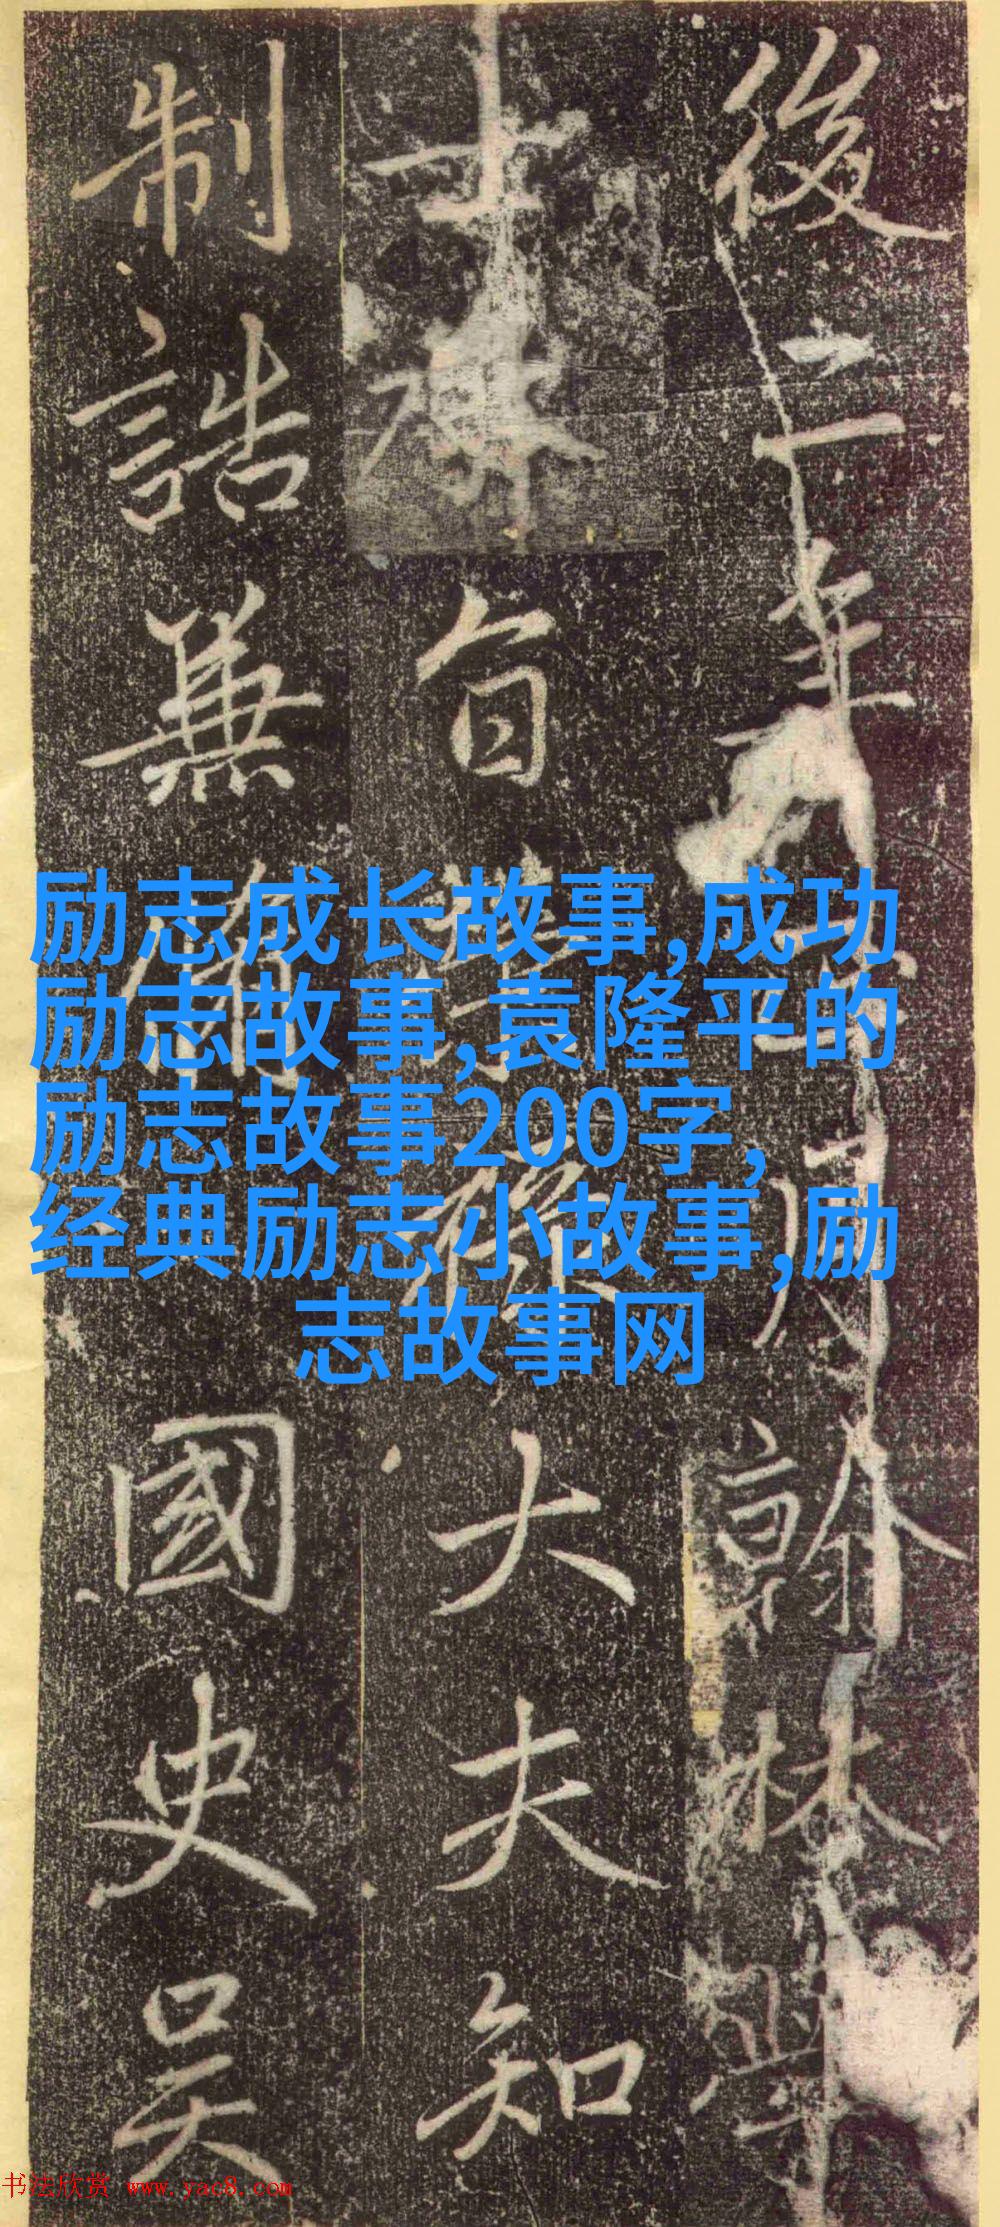 後二年月翰林學
士旨大夫知
制誥兼國史吳
励志成长故事,成功
励志故事,袁隆平的
励志故事200字,
经典励志小故事,励
志故事网
书法欣赏 www.yac8.com